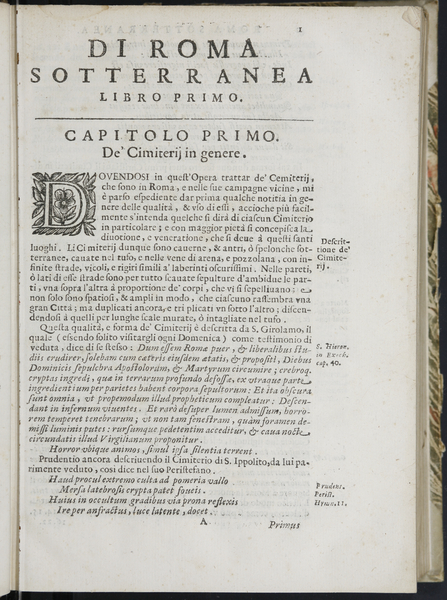 1
DI ROMA
SOTTERRANEA
LIBRO PRIMO.
CAPITOLO PRIMO.
De' Cimiterij in genere.
DOVENDOSI in quest'Opera trattar de' Cemiterij,
che sono in Roma, e nelle sue campagne vicine, mi
è parso espediente dar prima qualche notitia in ge-
nere delle qualità, & vso di essi, accioche più facil-
mente s'intenda quelche si dirà di ciascun Cimiterio
in particolare; e con maggior pietà si concepisca la
diuotione, e veneratione, che si deue à questi santi
luoghi. Li Cimiterij dunque sono cauerne, & antri, ò spelonche sot-
terranee, cauate nel tufo, e nelle vene di arena, e pozzolana, con in-
finite strade, vicoli, e rigiri simili a' laberinti oscurissimi. Nelle pareti,
ò lati di esse strade sono per tutto scauate sepulture d'ambidue le par-
ti, vna sopra l'altra à proportione de' corpi, che vi si sepelliuano: e
non solo sono spatiosi, & ampli in modo, che ciascuno rassembra vna
gran Città; ma duplicati ancora, e tri plicati vn sotto l'altro; discen-
dendosi à quelli per lunghe scale murate, ò intagliate nel tufo.
Descrit-
tione de'
Cimite-
rij.
Questa qualità, e forma de' Cimiterij è descritta da S. Girolamo, il
quale (essendo solito visitargli ogni Domenica) come testimonio di
veduta, dice di se stesso: Dum essem Romæ puer, & liberalibus stu-
dijs erudirer, solebam cum cæteris eiusdem ætatis, & propositi, Diebus
Dominicis sepulchra Apostolorum, & Martyrum circumire; crebroq.
cryptas ingredi, quæ in terrarum profundo defossæ, ex vtraque parte
ingredientium per parietes habent corpora sepultorum: Et ita obscura
sunt omnia, vt propemodum illud propheticum compleatur: Descen-
dant in infernum viuentes. Et rarò desuper lumen admissum, horro-
rem temperet tenebrarum; vt non tam fenestram, quàm foramen de-
missi luminis putes: rursumque pedetentim acceditur, & cæca nocte
circundatis illud Virgilianum proponitur.
S. Hieron.
in Ezech.
cap. 40.
Horror vbique animos, simul ipsa silentia terrent.
Prudentio ancora descriuendo il Cimiterio di S. Ippolito, da lui pa-
rimente veduto, così dice nel suo Peristefano.
Haud procul extremo culta ad pomeria vallo
Mersa latebrosis crypta patet foueis.
Huius in occultum gradibus via prona reflexis
Ire per anfractus, luce latente, docet.
Prudent.
Perist.
Hymn. 11.
A
Primus